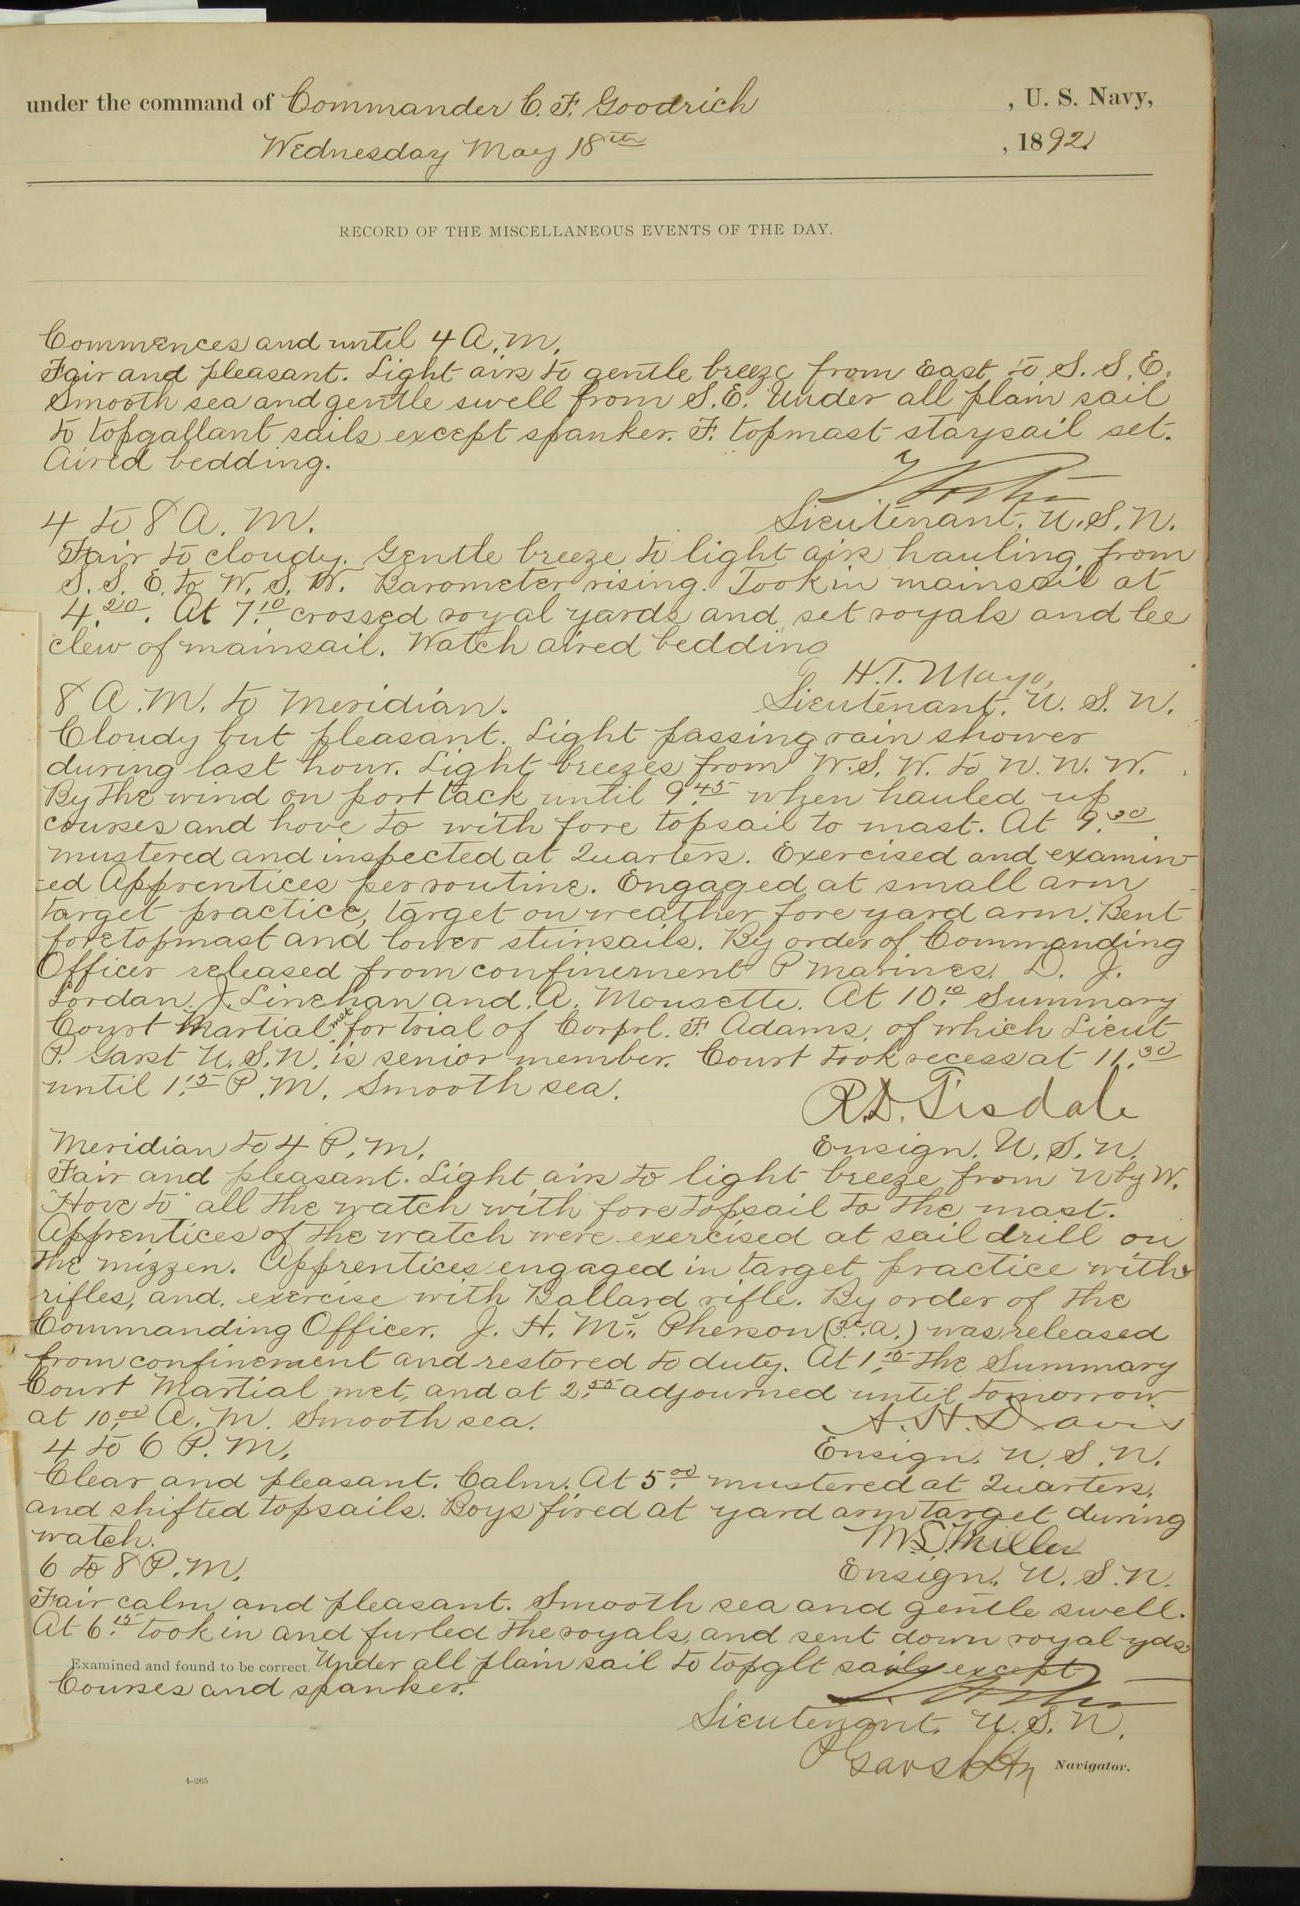 under the command of Commander C. F. Goodrich , U. S. Navy,
Wednesday May 18th , 1892.
RECORD OF THE MISCELLANEOUS EVENTS OF THE DAY.
Commences and until 4 A.M.
Fair and pleasant. Light airs to gentle breeze from East to S. S. E.
Smooth sea and gentle swell from S.E. Under all plain sail
to topgallant sails except spanker. F. topmast staysail set.
Aired bedding.
4 to 8 A. M.
Lieutenant. U.S.N.
Fair to cloudy. Gentle breeze to light airs hauling from
S. S. E. to W. S. W. Barometer rising. Took in mainsail at
4.20. At 7.10 crossed royal yards and set royals and lee
clew of mainsail. Watch aired bedding
H.T. Mayo,
8 A.M. to Meridian.
Lieutenant. U. S. N.
Cloudy but pleasant. Light passing rain shower
during last hour. Light breezes from W.S. W. to N. N. W.
By the wind on port tack until 9.45 when hauled up
courses and hove to with fore topsail to mast. At 9.30
mustered and inspected at Quarters. Exercised and examin-
-ed Apprentices per routine. Engaged at small arm
target practice, target on weather fore yard arm. Bent
foretopmast and lower stunsails. By order of Commanding
Officer released from confinement P Marines. D. J.
Lordan. J. Linehan and A. Mousette. At 10.10 Summary
Court Martial met for trial of Corprl. F Adams, of which Lieut
P. Garst U.S.N. is senior member. Court took recess at 11.30
until 1.15 P.M. Smooth sea.
R.D. Tisdale
Meridian to 4 P.M.
Ensign. U.S.N.
Fair and pleasant. Light airs to light breeze from N by W.
"Hove to" all the watch with fore topsail to the mast.
Apprentices of the watch were exercised at sail drill on
the mizzen. Apprentices engaged in target practice with
rifles, and exercise with Ballard rifle. By order of the
Commanding Officer. J. H. Mc Pherson (3c.a.) was released
from confinement and restored to duty. At 1.15 the Summary
Court Martial met, and at 2.55 adjourned until tomorrow
at 10.00 A. M. Smooth sea.
A. H. Davis
4 to 6 P.M.
Ensign. U.S.N.
Clear and pleasant. Calm. At 5.00 mustered at Quarters,
and shifted topsails. Boys fired at yard arm target during
watch.
M S Miller
6 to 8 P.M.
Ensign. U.S.N.
Fair calm and pleasant. Smooth sea and gentle swell.
At 6.15 took in and furled the royals, and sent down royal yds.
Examined and found to be correct. Under all plain sail to topglt sails except
Courses and spanker.
Lieutenant. U.S.N.
Navigator.
4-265